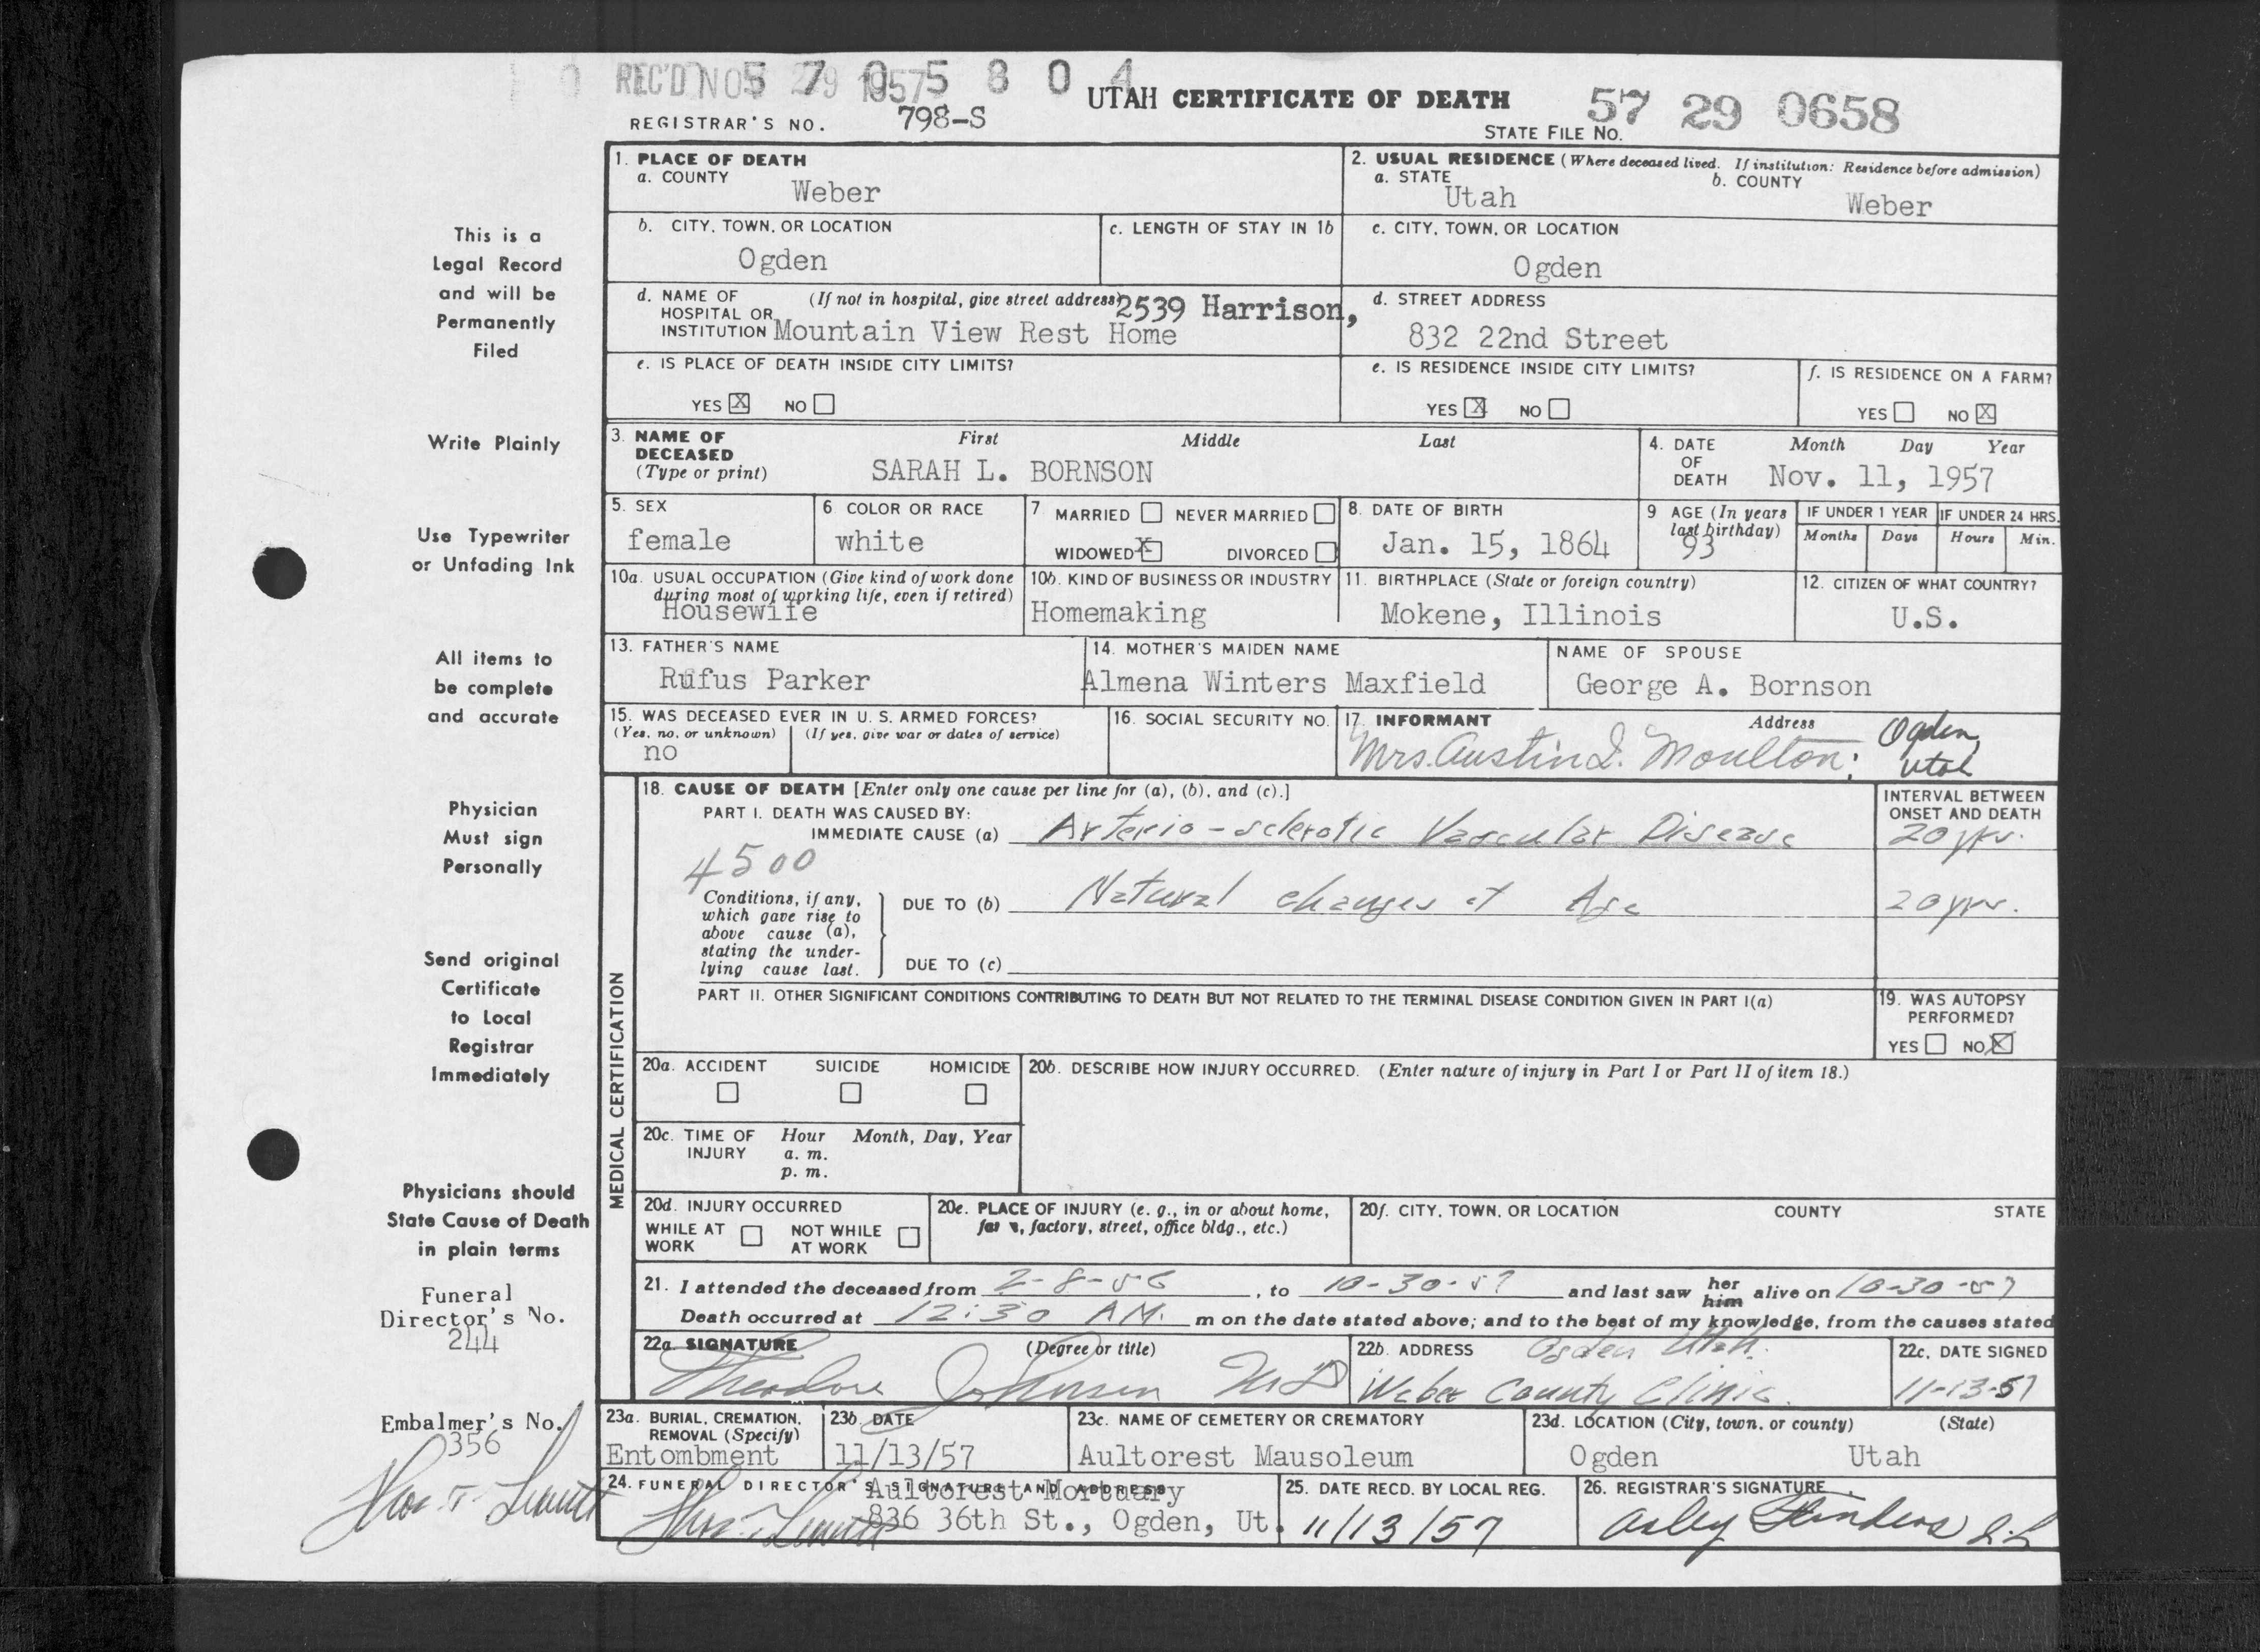 REC'D NOV 29 1957
5 7 0 5 8 0 4
UTAH CERTIFICATE OF DEATH
REGISTRAR'S NO. 798-S
STATE FILE NO. 57 29 0658
This is a
Legal Record
and will be
Permanently
Filed
Write Plainly
Use Typewriter
or Unfading Ink
All items to
be complete
and accurate
Physician
Must sign
Personally
Send original
Certificate
to Local
Registrar
Immediately
Physicians should
State Cause of Death
in plain terms
Funeral
Director's No.
244
Embalmer's No.
356
1. PLACE OF DEATH
a. COUNTY
Weber
2. USUAL RESIDENCE (Where deceased lived. If institution: Residence before admission)
a. STATE
Utah
b. COUNTY
Weber
b. CITY, TOWN, OR LOCATION
Ogden
c. LENGTH OF STAY IN 1b
c. CITY, TOWN, OR LOCATION
Ogden
d. NAME OF HOSPITAL OR INSTITUTION (If not in hospital, give street address) 2539 Harrison,
Mountain View Rest Home
d. STREET ADDRESS
832 22nd Street
e. IS PLACE OF DEATH INSIDE CITY LIMITS?
YES X NO
e. IS RESIDENCE INSIDE CITY LIMITS?
YES X NO
f. IS RESIDENCE ON A FARM?
YES NO X
3. NAME OF DECEASED (Type or print)
First Middle Last
SARAH L. BORNSON
4. DATE OF DEATH
Month Day Year
Nov. 11, 1957
5. SEX
female
6 COLOR OR RACE
white
7 MARRIED NEVER MARRIED
WIDOWED X DIVORCED
8. DATE OF BIRTH
Jan. 15, 1864
9 AGE (In years last birthday)
93
IF UNDER 1 YEAR
Months Days
IF UNDER 24 HRS.
Hours Min.
10a. USUAL OCCUPATION (Give kind of work done during most of working life, even if retired)
Housewife
10b. KIND OF BUSINESS OR INDUSTRY
Homemaking
11. BIRTHPLACE (State or foreign country)
Mokene, Illinois
12. CITIZEN OF WHAT COUNTRY?
U.S.
13. FATHER'S NAME
Rufus Parker
14. MOTHER'S MAIDEN NAME
Almena Winters Maxfield
NAME OF SPOUSE
George A. Bornson
15. WAS DECEASED EVER IN U. S. ARMED FORCES?
(Yes, no, or unknown) (If yes, give war or dates of service)
no
16. SOCIAL SECURITY NO.
17. INFORMANT Address
Mrs. Austin I. Moulton; Ogden, Utah
MEDICAL CERTIFICATION
18. CAUSE OF DEATH [Enter only one cause per line for (a), (b), and (c).]
INTERVAL BETWEEN ONSET AND DEATH
PART I. DEATH WAS CAUSED BY:
IMMEDIATE CAUSE (a) Arterio-sclerotic Vascular Disease 20 yrs.
4500
Conditions, if any, which gave rise to above cause (a), stating the underlying cause last.
DUE TO (b) Natural changes of Age 20 yrs.
DUE TO (c)
PART II. OTHER SIGNIFICANT CONDITIONS CONTRIBUTING TO DEATH BUT NOT RELATED TO THE TERMINAL DISEASE CONDITION GIVEN IN PART I(a)
19. WAS AUTOPSY PERFORMED?
YES NO X
20a. ACCIDENT SUICIDE HOMICIDE
20b. DESCRIBE HOW INJURY OCCURRED. (Enter nature of injury in Part I or Part II of item 18.)
20c. TIME OF INJURY Hour Month, Day, Year
a. m.
p. m.
20d. INJURY OCCURRED
WHILE AT WORK NOT WHILE AT WORK
20e. PLACE OF INJURY (e. g., in or about home, farm, factory, street, office bldg., etc.)
20f. CITY, TOWN, OR LOCATION COUNTY STATE
21. I attended the deceased from 2-8-56, to 10-30-57 and last saw her him alive on 10-30-57
Death occurred at 12:30 A.M. m on the date stated above; and to the best of my knowledge, from the causes stated
22a. SIGNATURE (Degree or title)
Theodore Johnson MD
22b. ADDRESS Ogden Utah.
Weber County Clinic.
22c. DATE SIGNED
11-13-57
23a. BURIAL, CREMATION, REMOVAL (Specify)
Entombment
23b. DATE
11/13/57
23c. NAME OF CEMETERY OR CREMATORY
Aultorest Mausoleum
23d. LOCATION (City, town, or county) (State)
Ogden Utah
24. FUNERAL DIRECTOR'S SIGNATURE AND ADDRESS
Aultorest Mortuary
836 36th St., Ogden, Ut.
25. DATE RECD. BY LOCAL REG.
11/13/57
26. REGISTRAR'S SIGNATURE